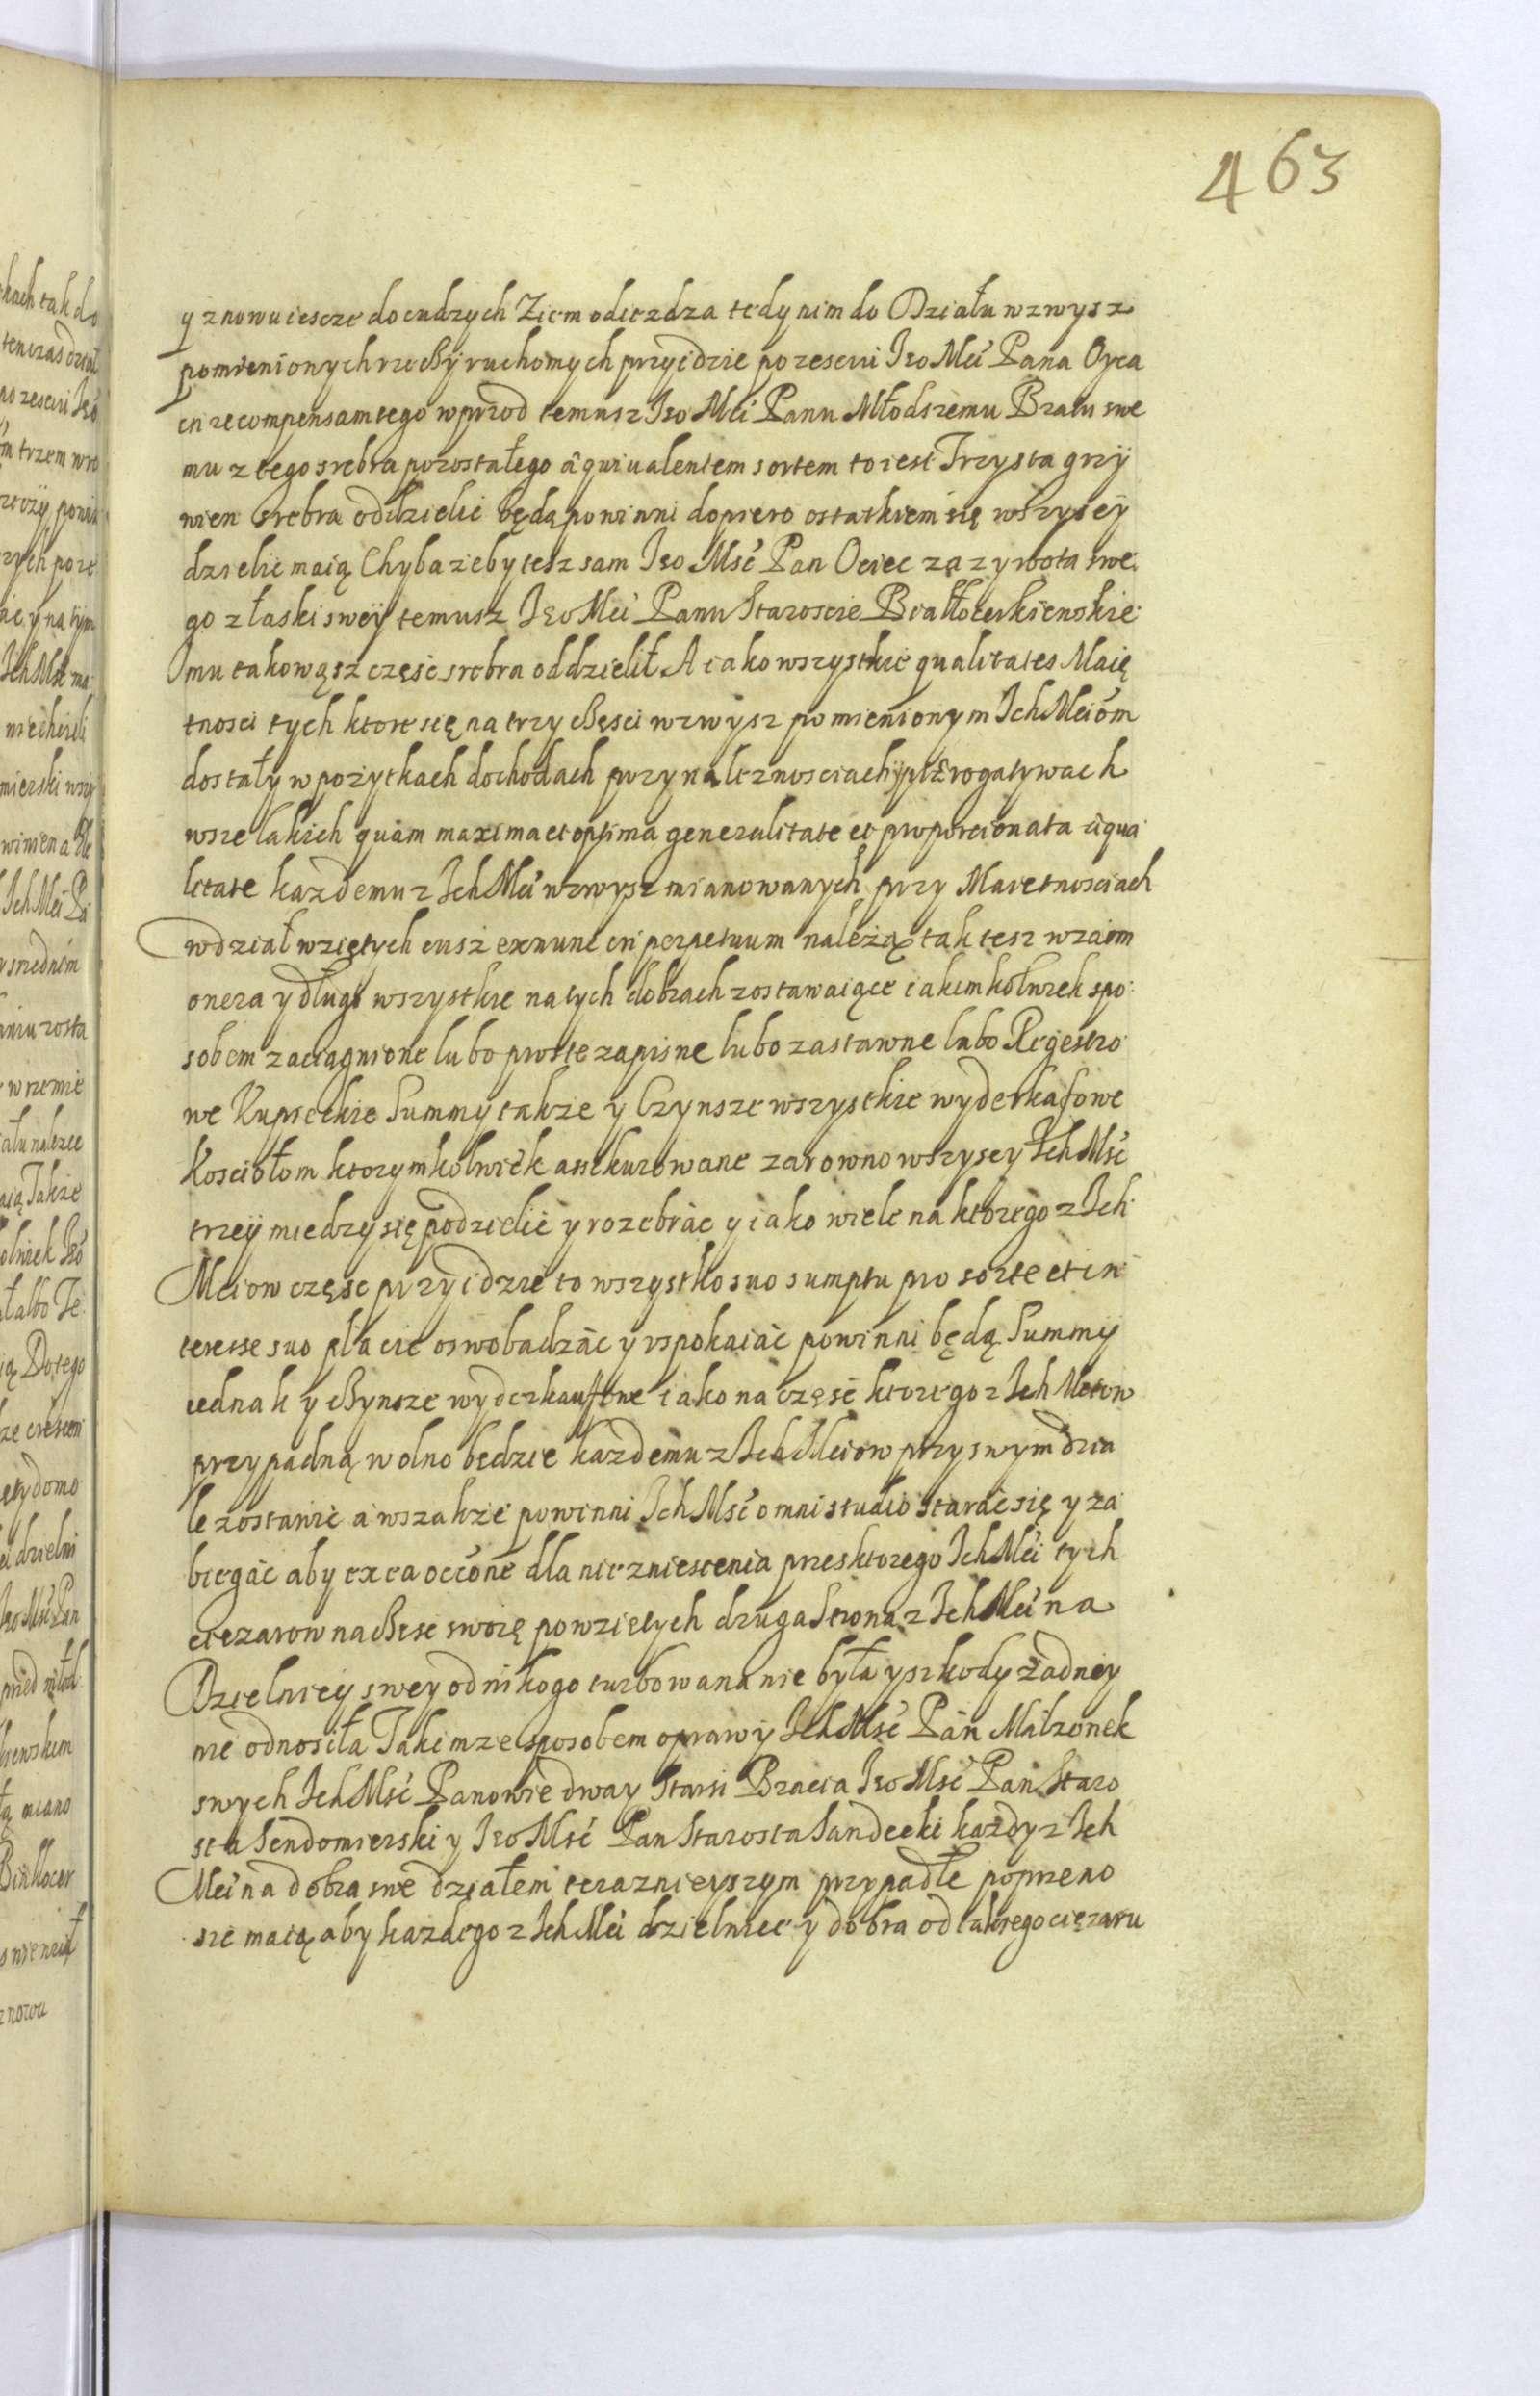 463
y znowu iescze do cudzych Ziem odiezdza tedy nim do Działu wzwysz
pomienionych rzeczÿ ruchomych przyidzie po zesciu Ieo Mci Pana Oyca
in recompensam tego wprzod temusz Ieo Mci Panu Młodszemu Bratu swe
mu z tego srebra pozostałego æquiualentem sortem to iest Trzysta grzÿ
wien srebra oddzielic będą powinni dopiero ostatkiem się wszyscÿ
dzielic maią Chyba zeby tesz sam Ieo Msć Pan Ociec za zywota swe
go z łaski sweÿ temusz Ieo Mci Panu Staroscie Białłocerkienskie
mu takowąsz częsc srebra oddzielił A iako wszystkie qualitates Maię
tnosci tych ktore się na trzy częsci wzwysz pomienionym Ich Mciom
dostały w pożytkach dochodach przynaleznosciach ÿ prærogatywach
wszelakich quàm maxima et optima generalitate et proporcionata æqua
litate kazdemu z Ich Mci wzwysz mianowanych przy Maietnosciach
w dział wziętych iusz exnunc in perpetuum należą tak tesz wzaiem
onera y dlugi wszystkie na tych dobrach zostawaiące iakimkolwiek spo
sobem zaciągnione lubo proste zapisne lubo zastawne lubo Regestro
we Kupieckie Summy takze y Czynsze wszystkie wyderkafowe
Kosciołom ktorymkolwiek assekurowane zarowno wszyscy Ich Msć
trzeÿ miedzy się podzielić y rozebrác y iako wiele na ktorego z Ich
Mciow częsc przyidzie to wszystko suo sumptu pro sorte et in
teresse suo płacic oswobadzác y vspokaiác powinni będą Summÿ
iednak y czynsze wyderkauffowe iako na część ktorego z Ich Mciow
przypadną wolno będzie kazdemu z Ich Mciow przy swym dzia
le zostawic a wszakze powinni Ich Msć omni studio starac się y za
biegác aby ex ea occone dla nie zniescenia przez ktorego Ich Mci tych
ciezarow na częsc swoię powziętych druga Strona z Ich Mci na
Dzielnicÿ swey od nikogo turbowana nie była y szkody żadney
nie odnosiła Takimze sposobem oprawÿ Ich Msć Pán Małzonek
swych Ich Msć Panowie dway Starsi Bracia Ieo Msć Pan Staro
sta Sendomierski y Ieo Msć Pan Starosta Sandecki każdy z Ich
Mci na dobra swe działem teraznieyszym przypadłe poprzeno
sic maią aby kazdego z Ich Mci dzielnice y dobra od takiego cięzaru